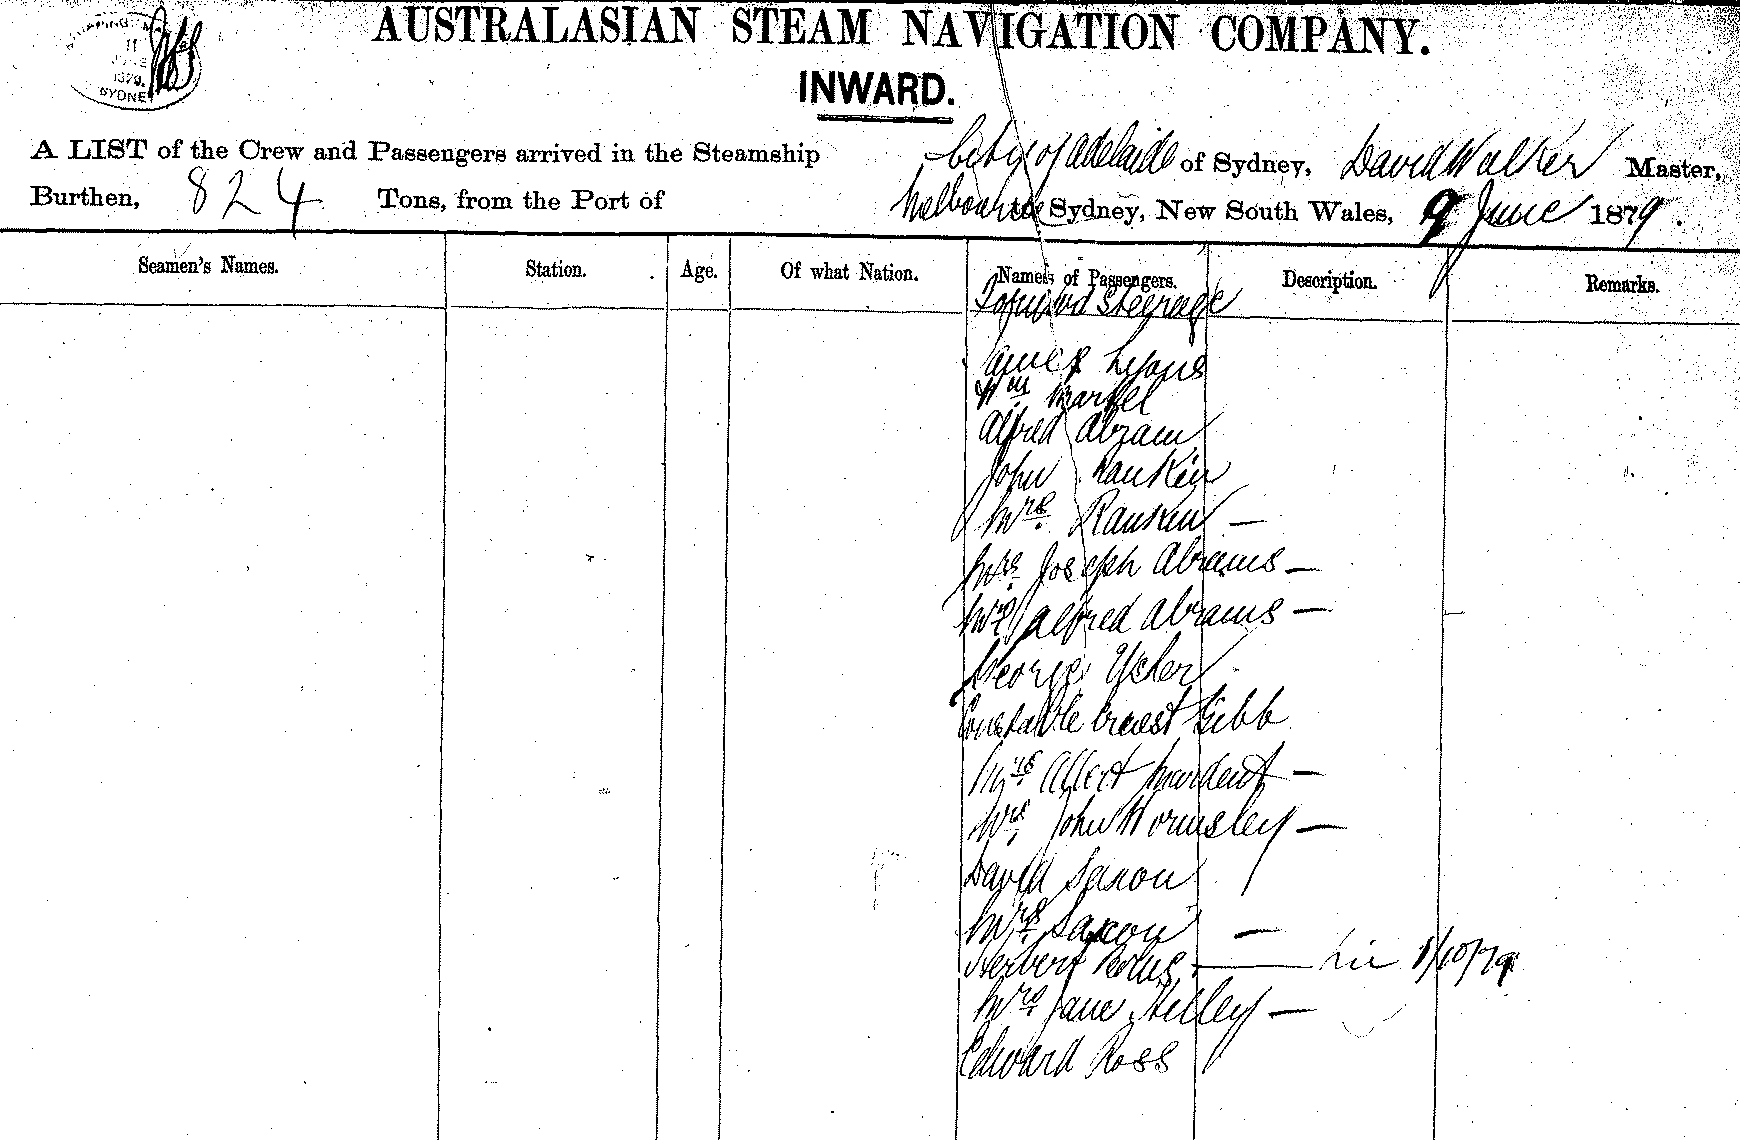 SHIPPING
11
JUNE
1879.
SYDNEY
AUSTRALASIAN STEAM NAVIGATION COMPANY.
INWARD.
A LIST of the Crew and Passengers arrived in the Steamship City of Adelaide of Sydney, David Walker Master,
Burthen, 824 Tons, from the Port of Melbourne to Sydney, New South Wales, 9 June 1879.
Seamen's Names. Station. Age. Of what Nation. Names of Passengers. Description. Remarks.
Steerage
Lyons
Wm
Alfred Abram
John Rankin
Mrs. Rankin —
Mrs. Joseph Abrams —
Mrs Alfred Abrams —
George
Constable Ernest Gibb
Mrs Albert —
Mrs. John Wormsley —
David Saxon
Mrs. Saxon —
Herbert — 1/10/79
Mrs Jane Helley —
Edward Ross